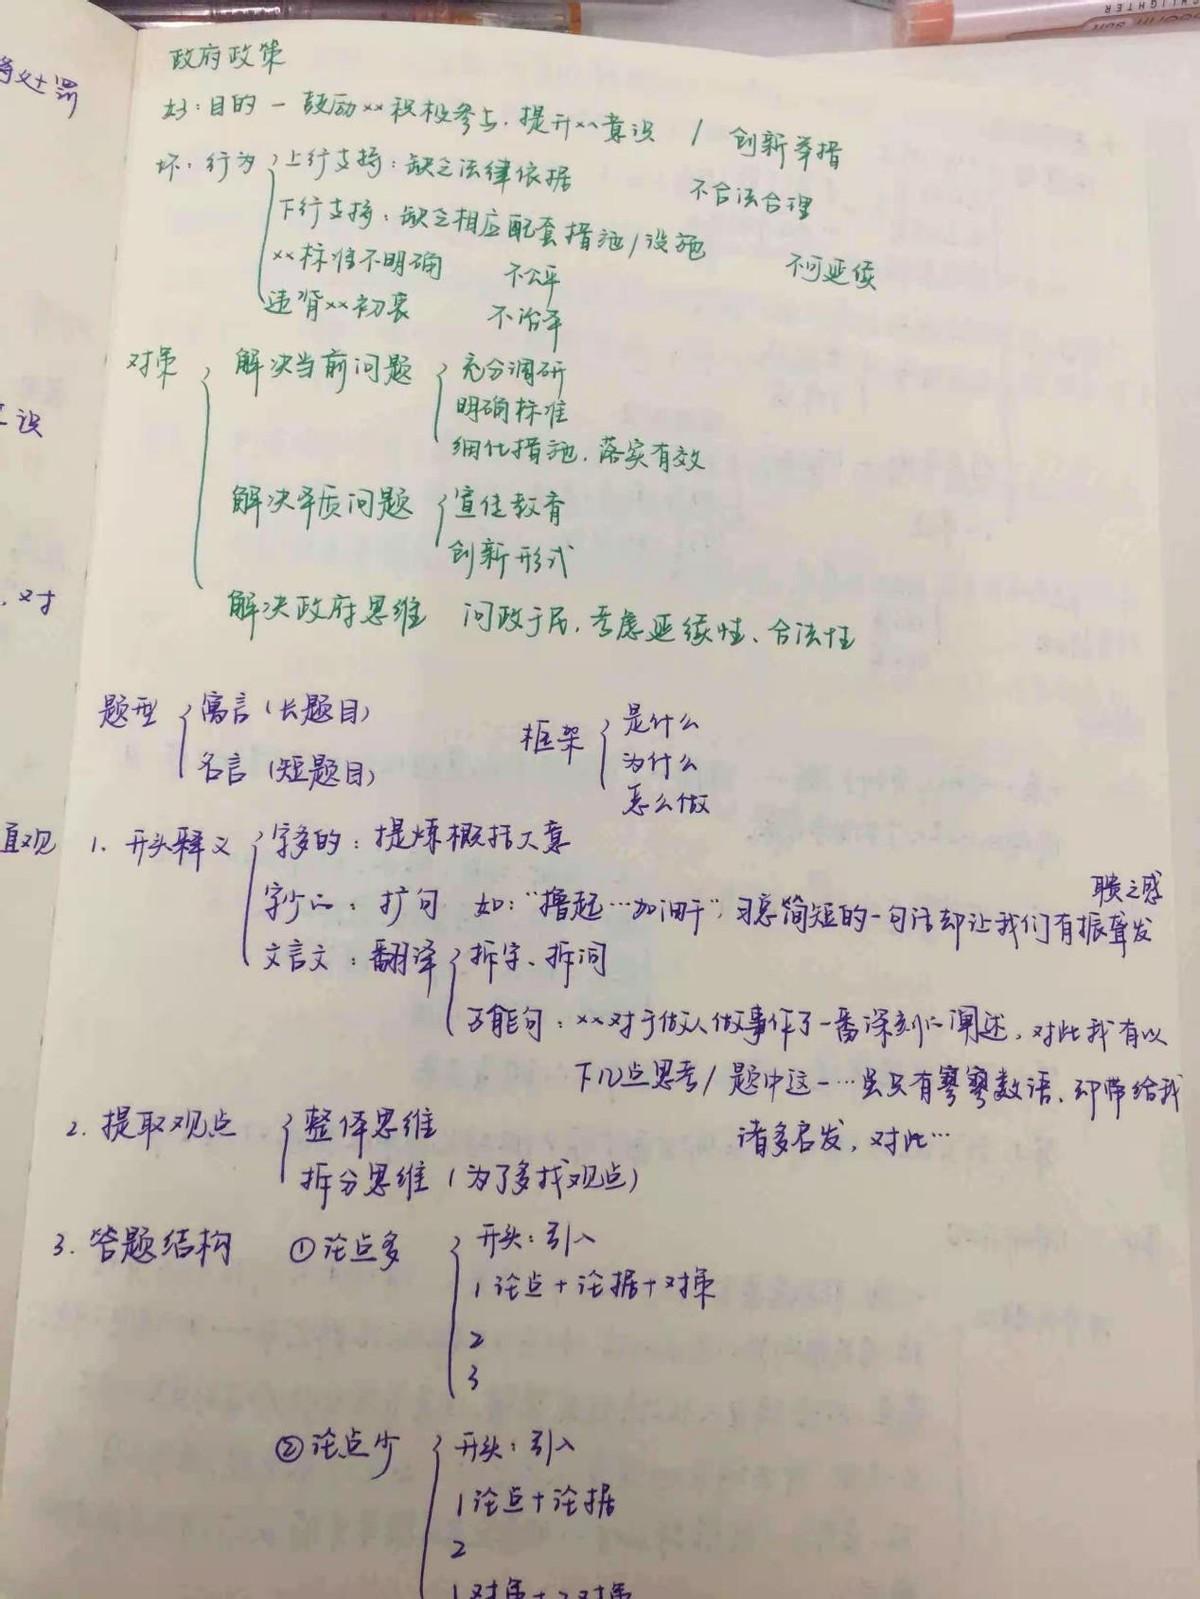 政府政策
好：目的 — 鼓励××积极参与．提升××意识 / 创新举措
坏：行为 上行支持：缺乏法律依据 不合法合理
下行支持：缺乏相应配套措施/设施 不可延续
××标准不明确 不公平
违背××初衷 不治本
对策 解决当前问题 充分调研
明确标准
细化措施．落实有效
解决本质问题 宣传教育
创新形式
解决政府思维 问政于民，考虑延续性、合法性
题型 寓言（长题目）
名言（短题目）
框架 是什么
为什么
怎么做
直观
1. 开头释义 字多的：提炼概括大意
字少的：扩句 如："撸起…加油干"，习总简短的一句话却让我们有振聋发聩之感
文言文：翻译 拆字、拆词
万能句：××对于做人做事作了一番深刻的阐述，对此我有以
下几点思考/ 题中这一…虽只有寥寥数语，却带给我
诸多启发，对此…
2. 提取观点 整体思维
拆分思维（为了多找观点）
3. 答题结构 ①论点多 开头：引入
1 论点+论据+对策
2
3
②论点少 开头：引入
1 论点+论据
2
1对策+2对策